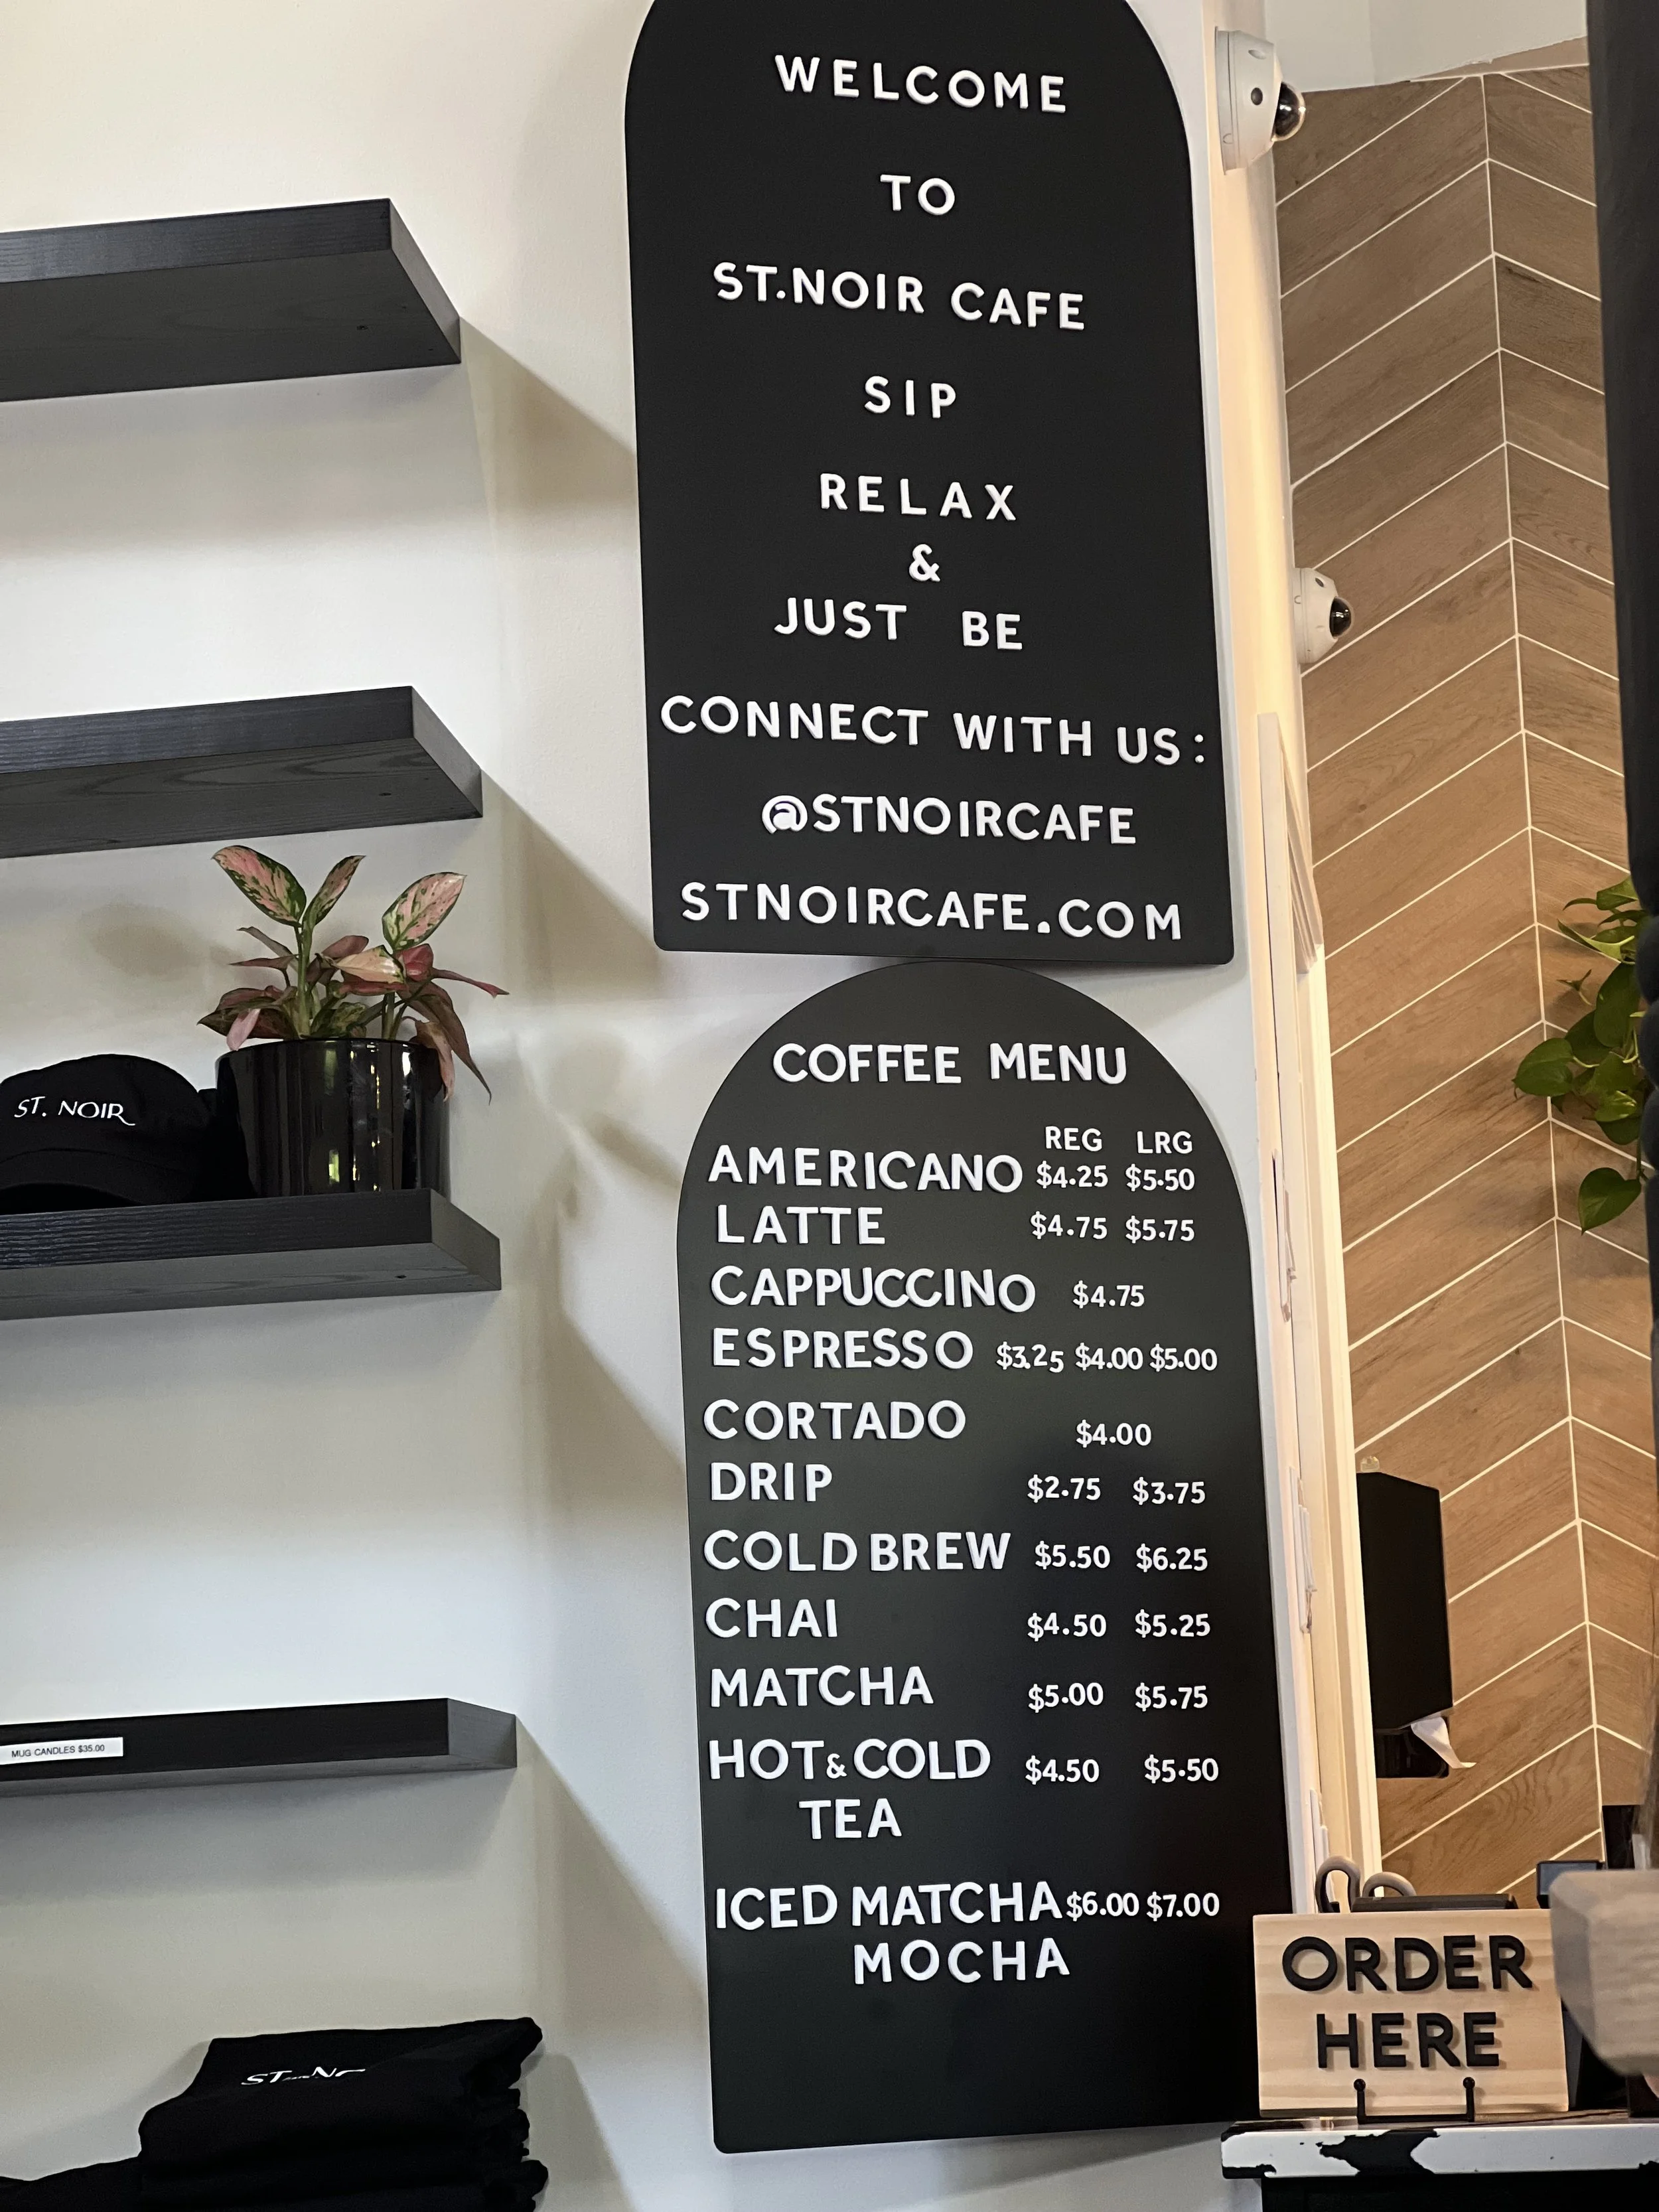 WELCOME
TO
ST.NOIR CAFE
SIP
RELAX
&
JUST BE
CONNECT WITH US:
@STNOIRCAFE
STNOIRCAFE.COM
COFFEE MENU
REG LRG
AMERICANO $4.25 $5.50
LATTE $4.75 $5.75
CAPPUCCINO $4.75
ESPRESSO $3.25 $4.00 $5.00
CORTADO $4.00
DRIP $2.75 $3.75
COLD BREW $5.50 $6.25
CHAI $4.50 $5.25
MATCHA $5.00 $5.75
HOT & COLD $4.50 $5.50
TEA
ICED MATCHA $6.00 $7.00
MOCHA
ST. NOIR
MUG CANDLES $35.00
ST.
ORDER
HERE